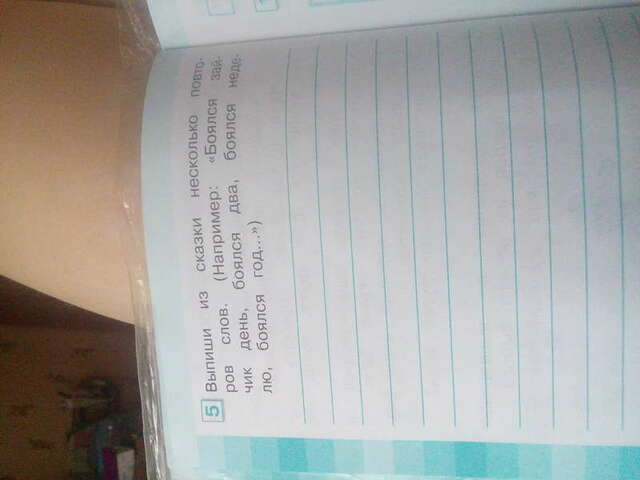 5 Выпиши из сказки несколько повто-
ров слов. (Например: «Боялся зай-
чик день, боялся два, боялся неде-
лю, боялся год...»)